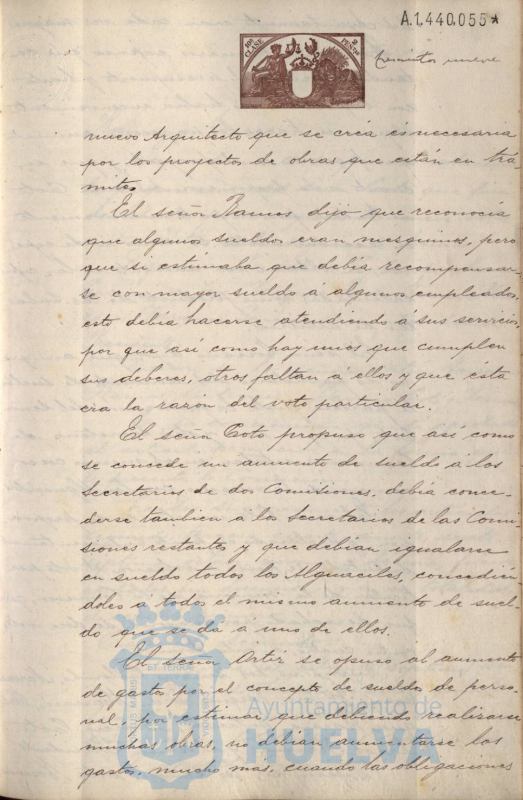 A.1.440.055*
10ª CLASE
2 PESETAS
nueve
nuevo Arquitecto que se créa és necesaria
por los proyectos de obras que están en trá-
mite.
El señor Ramos dijo que reconocía
que algunos sueldos eran mesquinos, pero
que si estimaba que debía recompensar-
se con mayor sueldo á algunos empleados,
esto debía hacerse atendiendo á sus servicios,
por que así como hay unos que cumplen
sus deberes, otros faltan á ellos y que ésta
era la razón del voto particular.
El señor Coto propuso que así como
se concede un aumento de sueldo á los
Secretarios de dos Comisiones, debía conce-
derse tambien á los Secretarios de las Comi-
siones restantes y que debían igualarse
en sueldo todos los Alguaciles, concedién
doles á todos el mismo aumento de suel-
do que se dá á uno de ellos.
El señor Ortiz se opuso al aumento
de gastos por el concepto de sueldos de perso-
nal, por estimar que debiendo realizarse
muchas obras, no debían aumentarse los
gastos, mucho mas, cuando las obligaciones
Ayuntamiento de
HUELVA